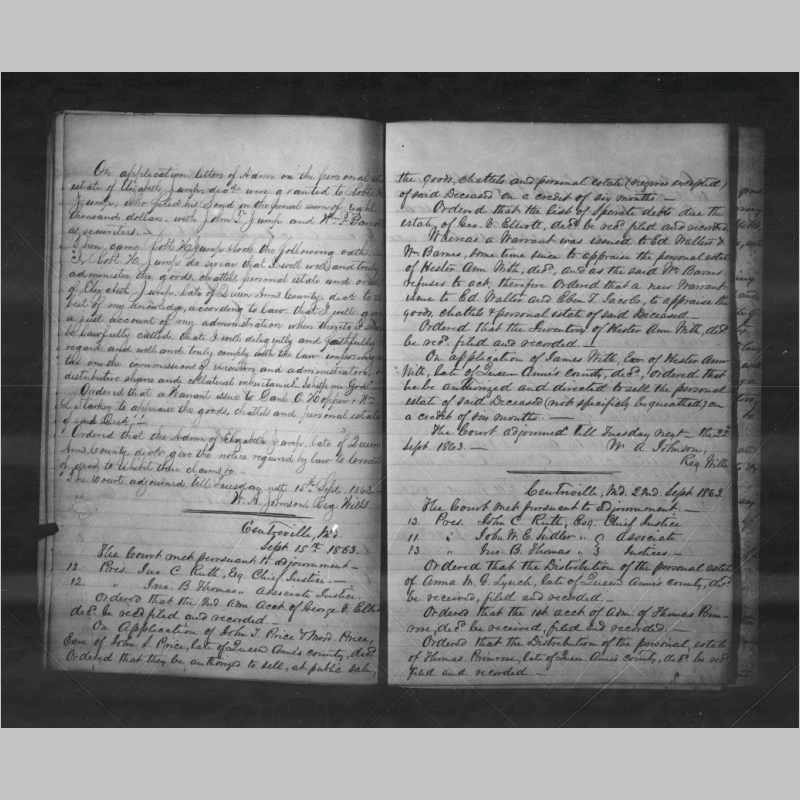 On application letters of Admn on the personal
estate of Elizabeth Jump, decd were granted to Robt H
Jump, who filed his bond in the penal sum of eight
thousand dollars with John T. Jump and Wm J.
as securities. —
Then came Robt H. Jump & took the following oath.
I, Robt H. Jump do swear that I will well and truly
administer the goods, chattels, personal estate and
of Elizabeth Jump, late of Queen Anns County, decd to the
best of my knowledge, according to law; that I will give
a just account of my administration when thereto I shall
be lawfully called; that I will diligently and faithfully
regard and well and truly comply with the law
the commissions of
distributive shares and collateral inheritances. So help me God
Ordered that a Warrant issue to Danl C. Hopper & Wm
to appraise the goods, chattels and personal estate
of said Decd. —
Ordered that the Admr of Elizabeth Jump, late of Queen
Anns County, decd give the notice required by law to creditors
to exhibit their claims. —
The Court adjourned till Tuesday next 15th Sept. 1863 —
W. A. Johnson, Reg. Wills
Centreville, Md.
Sept 15th 1863.
The Court met persuant to adjournment —
12. Pres. Jno C. Ruth, Esq. Chief Justice. —
12. " Jno. B. Thomas " Associate Justice.
Ordered that the 2nd Adm Acct of George
decd be recd filed and recorded —
On Application of John T. Price & Price,
Exrs of John S. Price, late of Queen Ann's county, decd
Ordered that they be authorized to sell, at public sale,
the goods, chattels and personal estate (negroes excepted)
of said Deceased on a credit of six months —
Ordered that the List of Sperate debts due the
estate of Geo. V. Elliott, decd be recd filed and recorded
Whereas a Warrant was issued to Ed. Walters &
Wm Barnes, some time since to appraise the personal estate
of Hester Ann Wilt, decd, and as the said Wm Barnes
refuses to act, therefore Ordered that a new Warrant
issue to Ed Walters and Eben T. Jacobs, to appraise the
goods, chattels & personal estate of said Deceased. —
Ordered that the Inventory of Hester Ann Wilt, decd
be recd filed and recorded. —
On application of James Wilt, Exr of Hester Ann
Wilt, late of Queen Ann's county, decd, Ordered that
he be authorized and directed to sell the personal
estate of said Deceased (not specificly bequeathed) on
a credit of six months. —
The Court adjourned till Tuesday next — the 22d
Sept 1863. — W. A. Johnson,
Reg. Wills
Centreville, Md. 22nd Sept 1863
The Court met persuant to adjournment. —
13. Pres. John C. Ruth, Esq. Chief Justice
11. " John W. E. Sudler " } Associate
13 " Jno. B. Thomas " } Justices. —
Ordered that the Distribution of the personal estate
of Anna M. G. Lynch, late of Queen Ann's county, decd
be received, filed and recorded.
Ordered that the 1st acct of Adm. of Thomas Prim-
rose, decd be received, filed and recorded. —
Ordered that the Distribution of the personal estate
of Thomas Primrose, late of Queen Ann's county, decd be recd
filed and recorded —